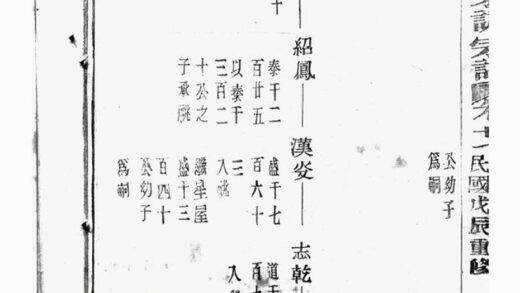 民國戊辰重修
公幼子
爲嗣
十
紹鳳
泰千二
百廿五
以泰千
三百二
十公之
子承祧
漢炎
盛千七
百六十
三
入
繼星屋
盛千三
百四十
公幼子
爲嗣
志乾
道千
入